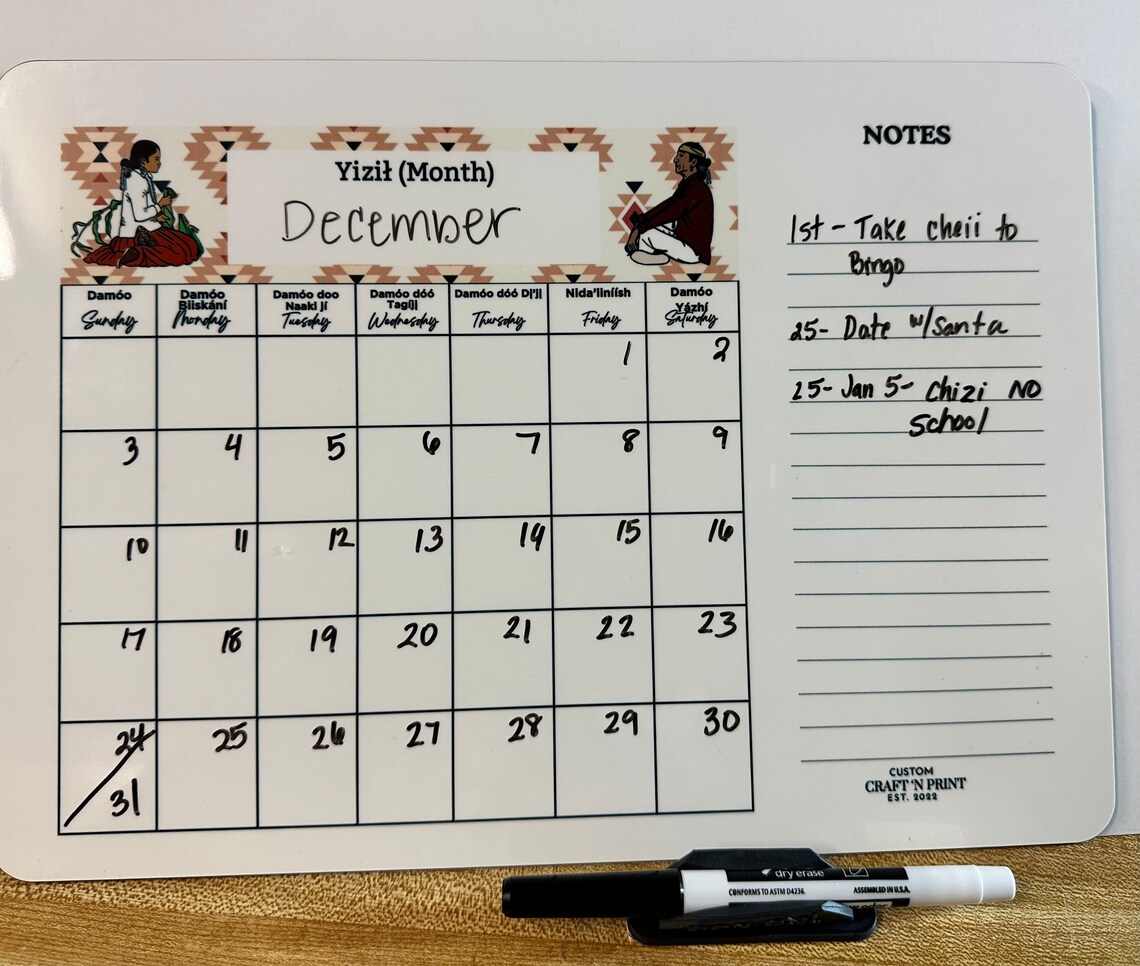 Yiził (Month)
December
Damóo
Sunday
Damóo
Biiskání
Monday
Damóo doo
Naaki Jí
Tuesday
Damóo dóó
Tagíjį
Wednesday
Damóo dóó Dį'jį
Thursday
Nida'iiníísh
Friday
Damóo
Yázhí
Saturday
1 2
3 4 5 6 7 8 9
10 11 12 13 14 15 16
17 18 19 20 21 22 23
24 25 26 27 28 29 30
31
NOTES
1st - Take cheii to
Bingo
25- Date w/Santa
25- Jan 5- Chizi NO
School
CUSTOM
CRAFT 'N PRINT
EST. 2022
dry erase
CONFORMS TO ASTM D4236.
ASSEMBLED IN U.S.A.